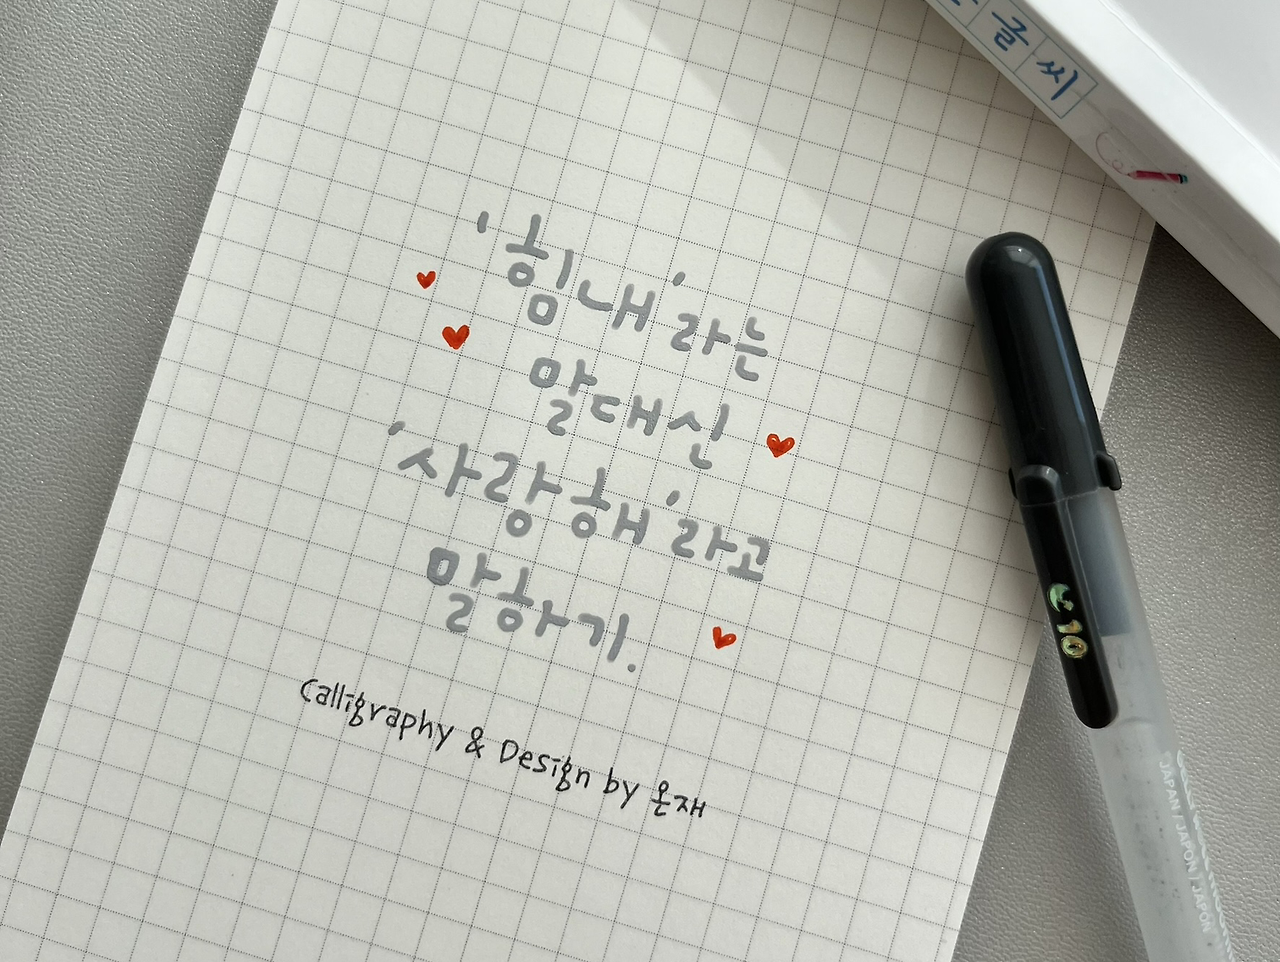 글씨
'힘내'라는
말 대신
'사랑해'라고
말하기.
Calligraphy & Design by 온재
10
JAPAN / JAPON / JAPON